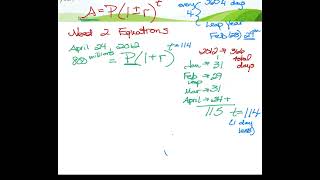 A = P(1±r)^t
every 4
365¼ days
Leap year
Feb (29) 29
Need 2 Equations
April 24, 2012
t=114
800 millions = P(1+r)
2012 → 366 total days
Jan → 31
Feb → 29
Leap
Mar → 31
April → 24 +
115 t=114
(1 day less)